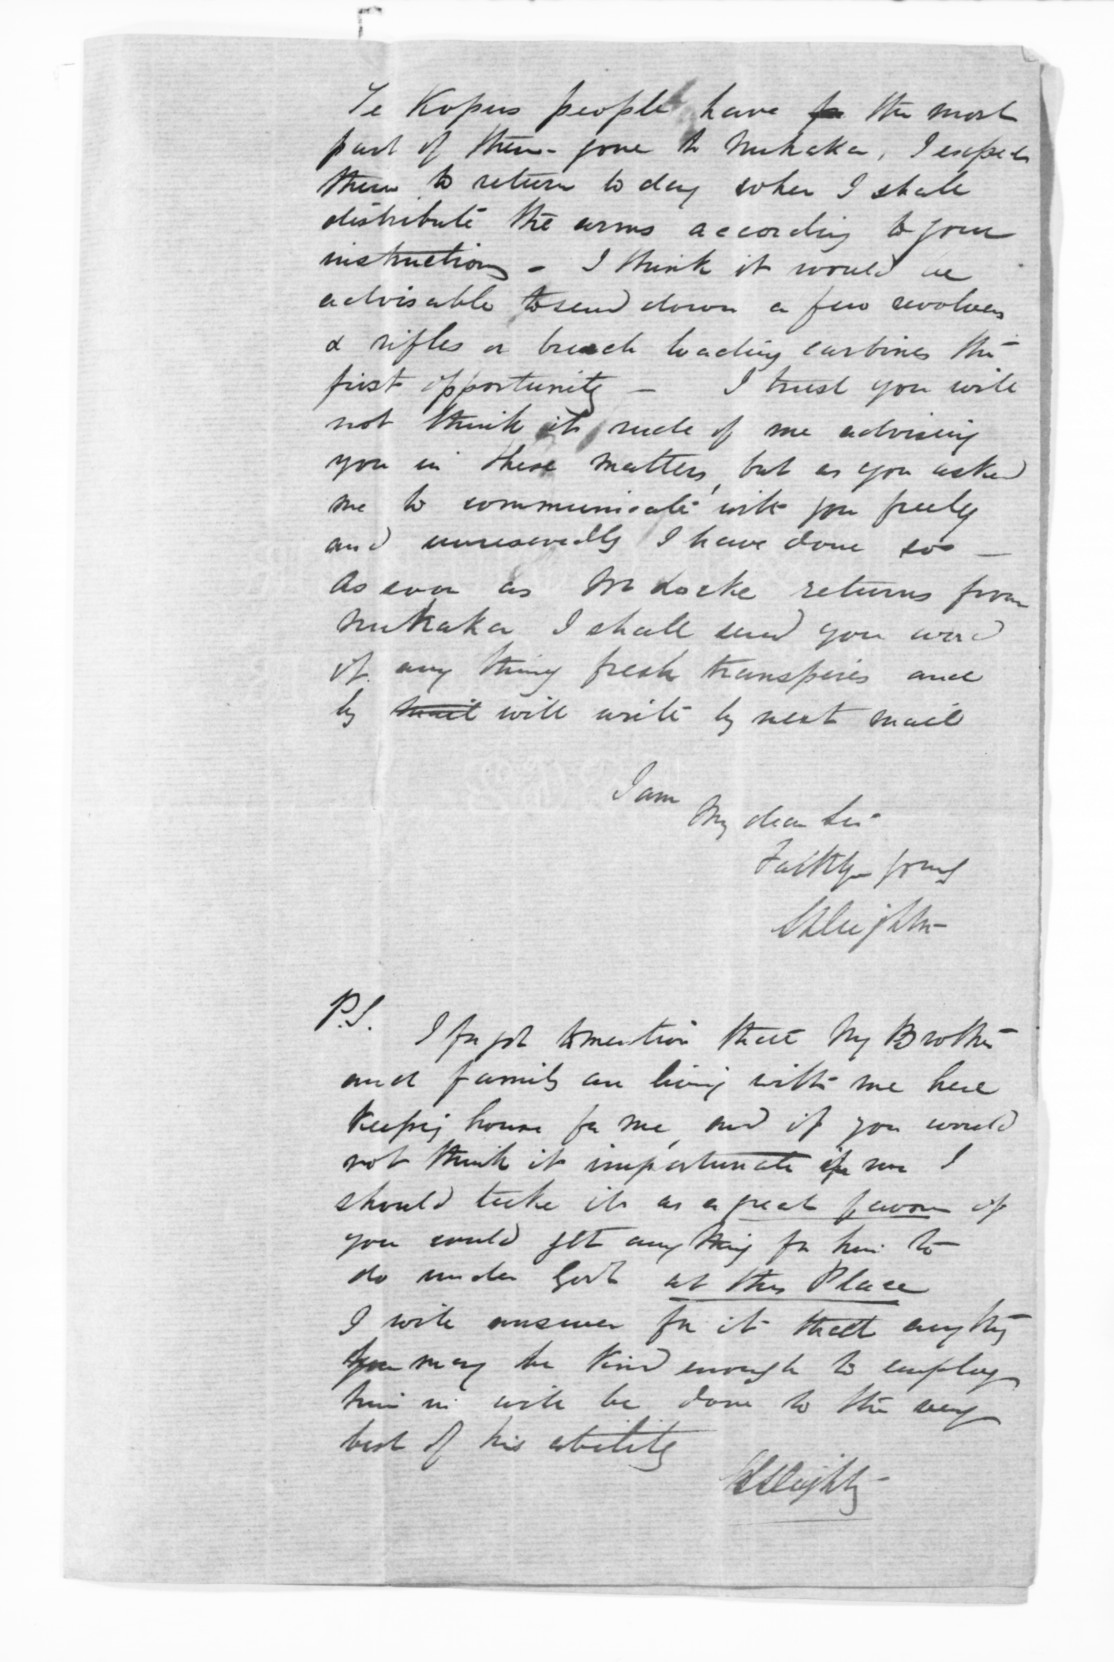 Te Kopus people have for the most
part of them - gone to Nuhaka, I expect
them to return to day when I shall
distribute the arms according to your
instructions - I think it would be
advisable to send down a few revolvers
& rifles or breech loading carbines the
first opportunity - I trust you will
not think it rude of me advising
you in these matters, but as you asked
me to communicate with you freely
and unreservedly I have done so -
As soon as Mr Locke returns from
Nuhaka I shall send you word
if any thing fresh transpires and
by mail will write by next mail
I am
My dear Sir
Faithfy yours
P.S.
I forgot to mention that My Brother
and family are living with me here
keeping house for me, and if you would
not think it importunate in me I
should take it as a great favour if
you could get any thing for him to
do under Govt at this Place
I will answer for it that anything
you may be kind enough to employ
him in will be done to the very
best of his ability